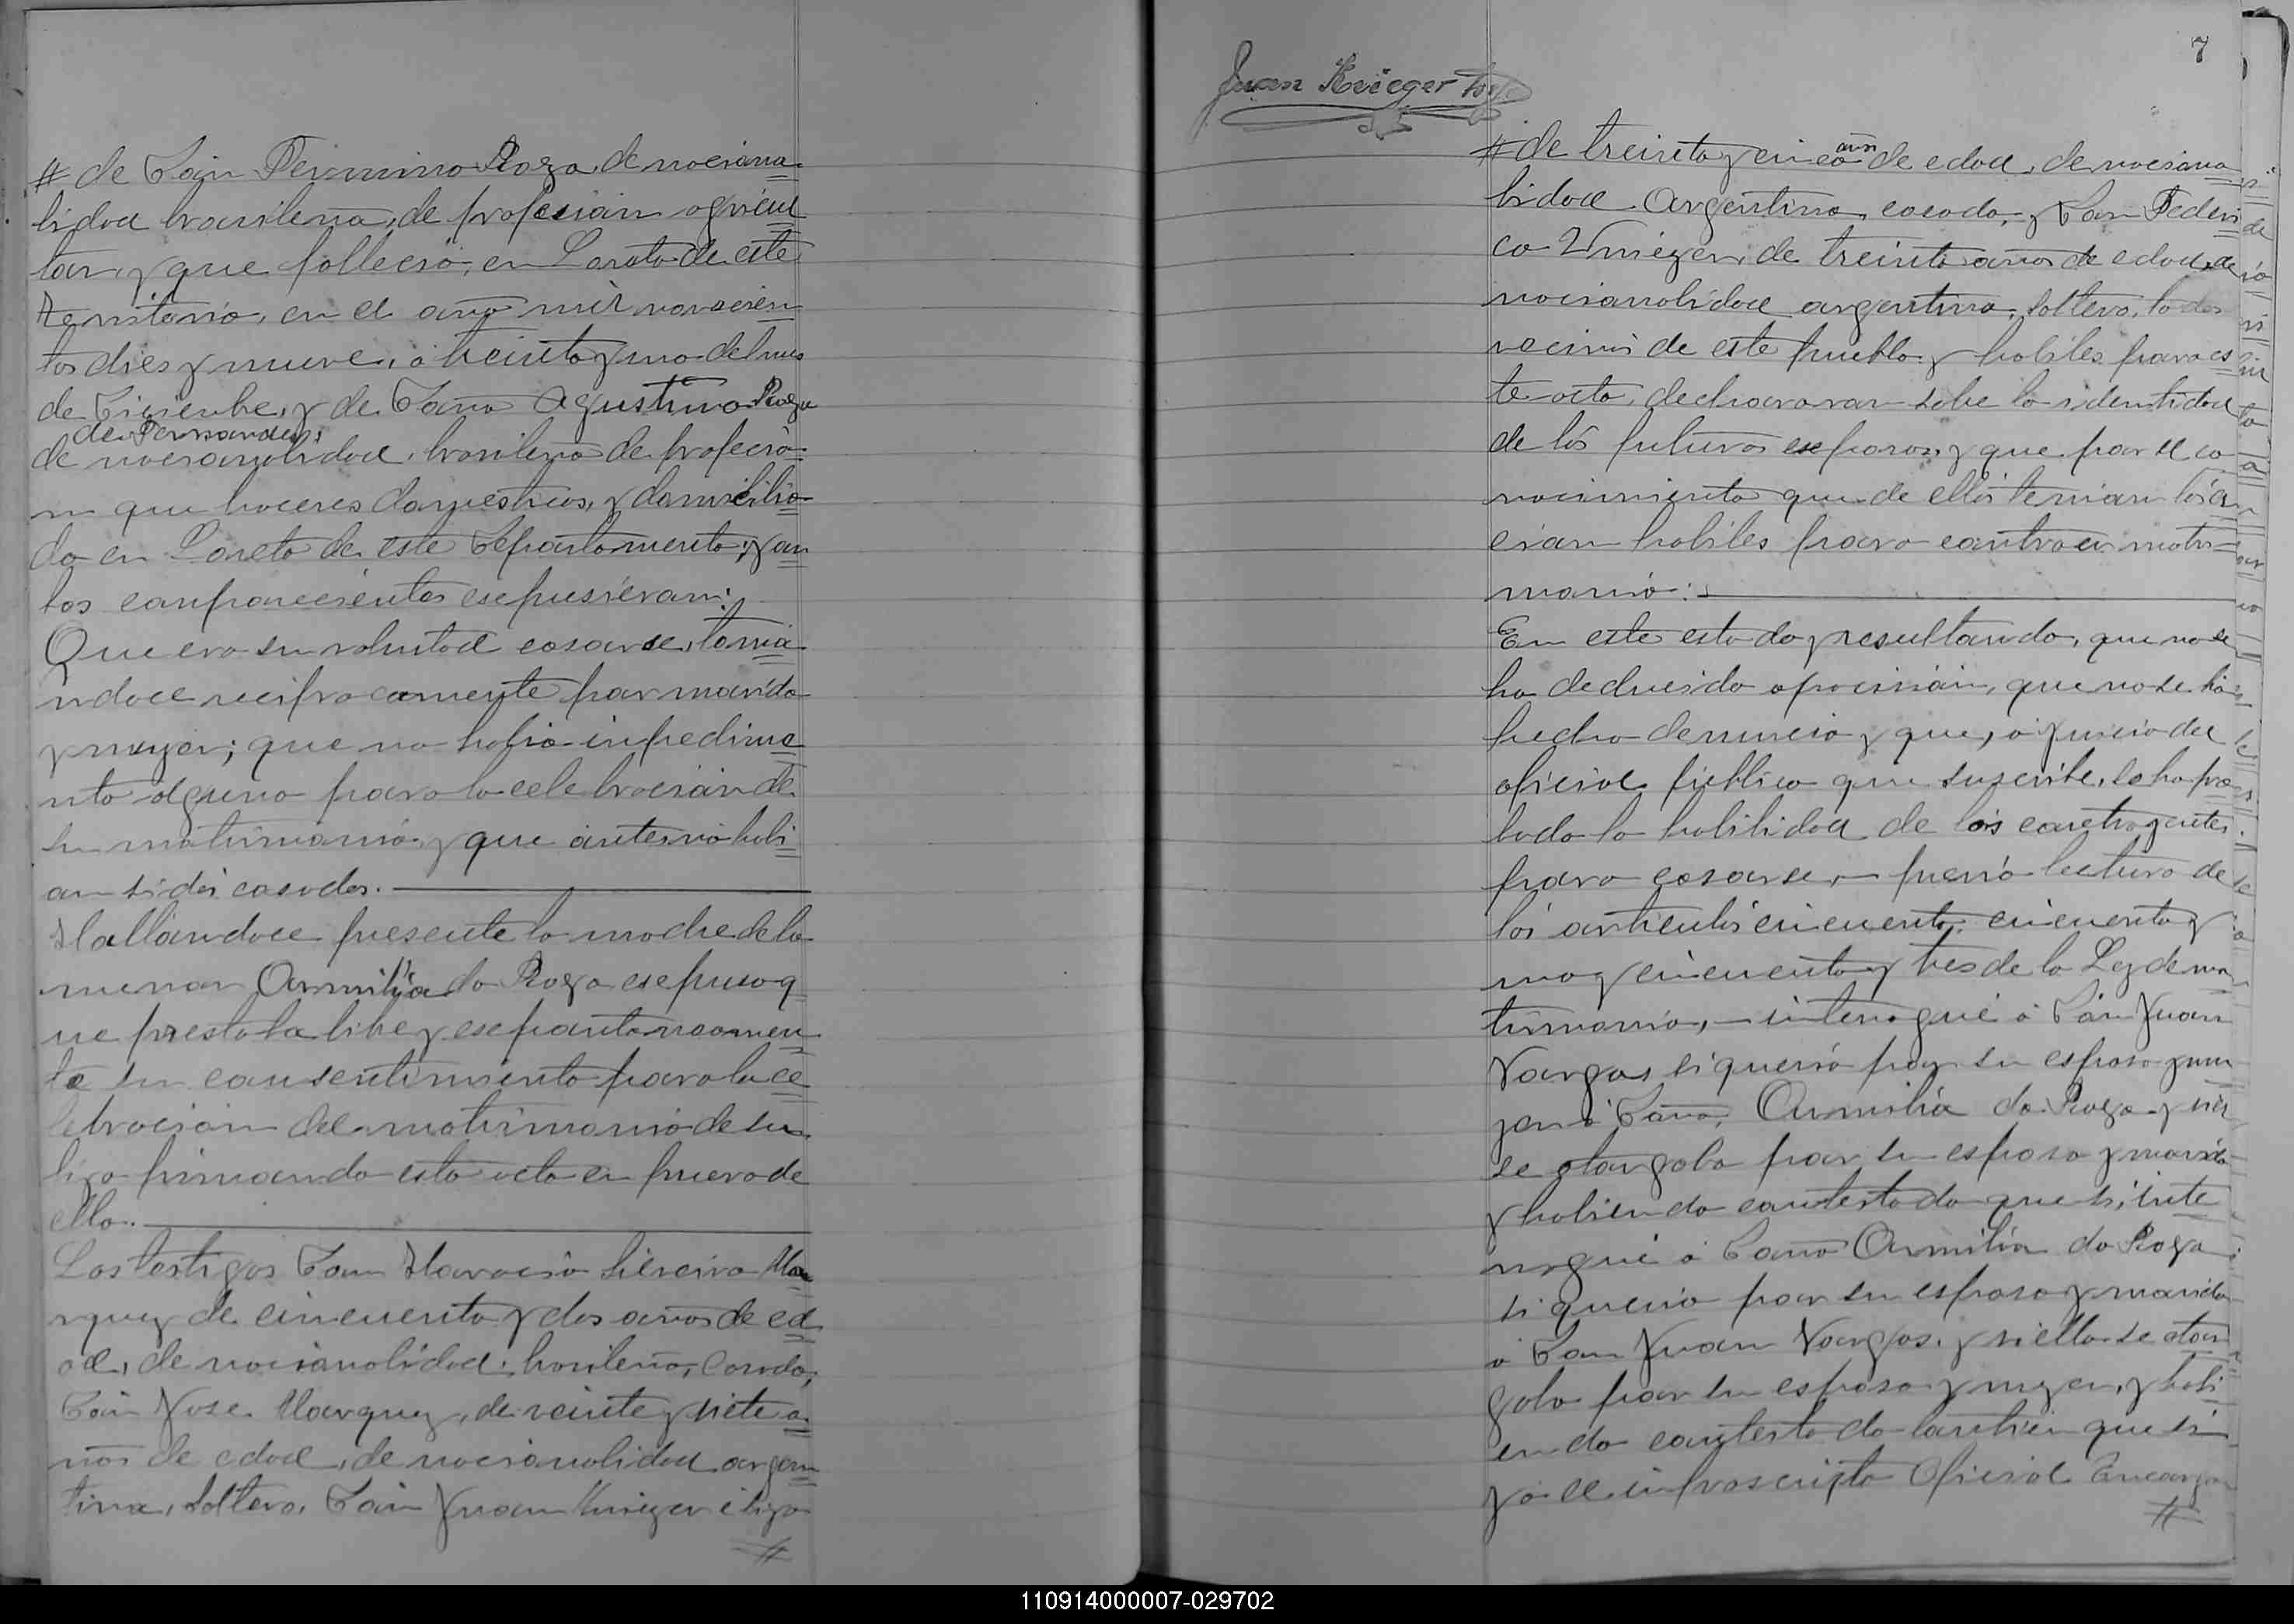 # de Don Fermino Roza, de naciona=
lidad brasilena, de profesión agricul
tor, y que fallecio, en Loreto de este
Territorio, en el año mil novecien
tos dies y nueve, á treinta y uno del mes
de Diciembre, y de Doña Agustina Roza
de Fernandes,
de nacionalidad, brasilena de profecio=
n que haceres domesticos, y domicilia=
da en Loreto de este Departamento; y an
tos comparecientes expusieron:
Que era su voluntad casarse, toma
ndoce reciprocamente por marido
y mujer; que no habia inpedime
nto alguno para la celebracion de
su matrimonio, y que antes no habi
an sidos casados.
Hallandoce presente la madre de la
menor Armilia da Roza expuso q
ue prestaba libre y espontaneamen
te su consentimiento para la ce
lebracion del matrimonio de su
hija firmando esta acta en prueva de
ello.
Los testigos Don Horacio Silveira Mar
quez de cincuenta y dos años de ed
ad, de nacionalidad brasileno, Casado,
Don Jose Marquez, de veinte y siete a
ños de edad, de nacionalidad argen
tina, soltero, Don Juan Krieger é hijo
#
110914000007-029702
7
Juan Krieger hijo
# de treinta y cinco años de edad, de naciona
lidad Argentina, casado, y Don Federi
co Krieger, de treinta años de edad, de
nacionalidad argentina, soltero, todos
vecinos de este pueblo y habiles para es
te acto, declararon sobre la identidad
de los futuros esposos, y que por el co
nocimiento que de ellos tenian los cr
eian habiles para contraer matri=
monio:
En este estado y resultando, que no se
ha deducido oposición, que no se ha
hecho denuncia y que, á juicio del
oficial publico que suscribe, se ha pro
bado la habilidad de los contrayentes
para casarse, — previa lectura de
los articulos cincuenta, cincuenta y
uno y cincuenta y tres de la Ley de ma
trimonio, — interrogué á Don Juan
Vargas si queria por su esposa y mu
jer á Doña, Armilia da Roza y si él
se otorgaba por su esposo y marido
y habiendo contestado que si, inte
rrogué a Doña Armilia da Roza
si queria por su esposo y marido
a Don Juan Vargas, y si ella se otor
gaba por su esposa y mujer, y habi
endo contestado tambien que si
yo el infrascripto Oficial Encarga
#